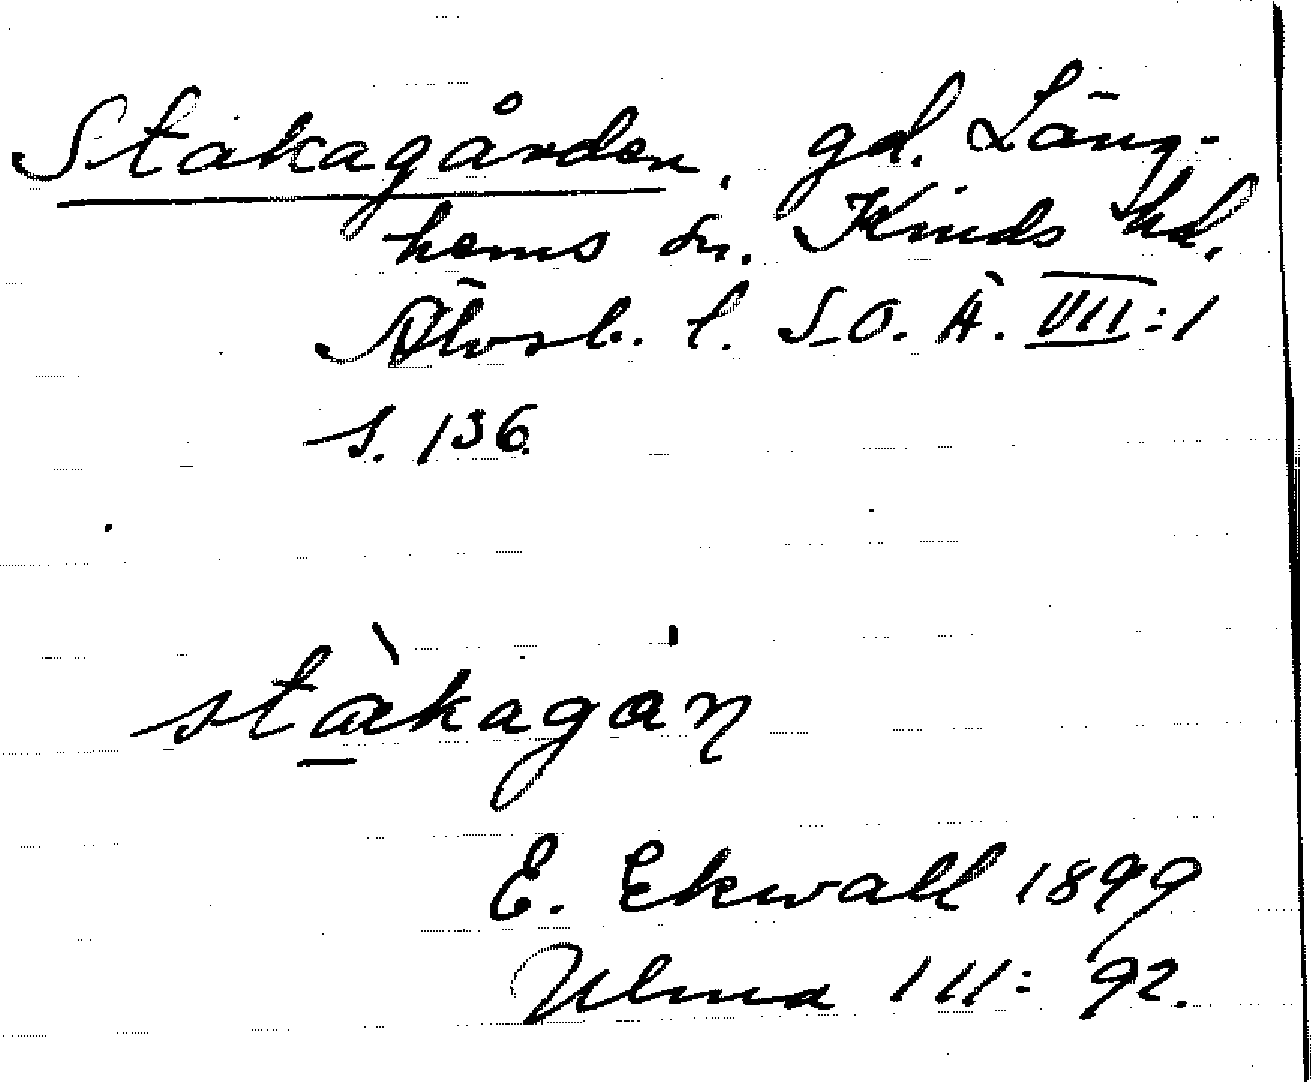 Stakagården, gd. Läng-
hems sn. Kinds hd.
Älvsb. l. S.O.Ä. VII:1
s. 136.
stàkagán
E. Ekwall 1899
Ulma 111: 92.